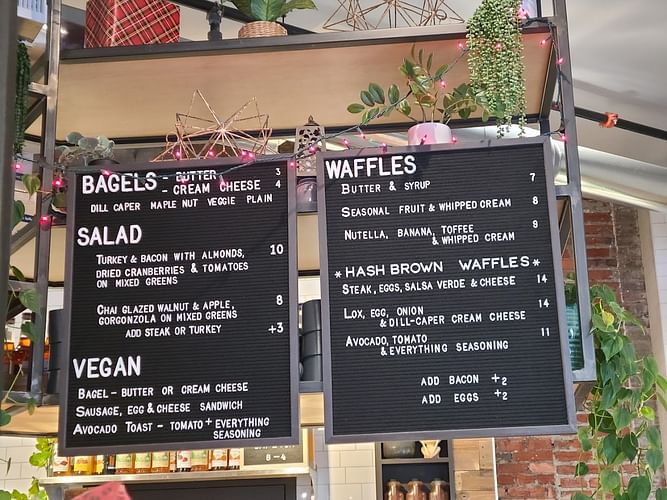 BAGELS - BUTTER 3
- CREAM CHEESE 4
DILL CAPER MAPLE NUT VEGGIE PLAIN
SALAD
TURKEY & BACON WITH ALMONDS, 10
DRIED CRANBERRIES & TOMATOES
ON MIXED GREENS
CHAI GLAZED WALNUT & APPLE, 8
GORGONZOLA ON MIXED GREENS
ADD STEAK OR TURKEY +3
VEGAN
BAGEL - BUTTER OR CREAM CHEESE
SAUSAGE, EGG & CHEESE SANDWICH
AVOCADO TOAST - TOMATO + EVERYTHING
SEASONING
WAFFLES
BUTTER & SYRUP 7
SEASONAL FRUIT & WHIPPED CREAM 8
NUTELLA, BANANA, TOFFEE 9
& WHIPPED CREAM
* HASH BROWN WAFFLES *
STEAK, EGGS, SALSA VERDE & CHEESE 14
LOX, EGG, ONION 14
& DILL-CAPER CREAM CHEESE
AVOCADO, TOMATO 11
& EVERYTHING SEASONING
ADD BACON +2
ADD EGGS +2
8-4